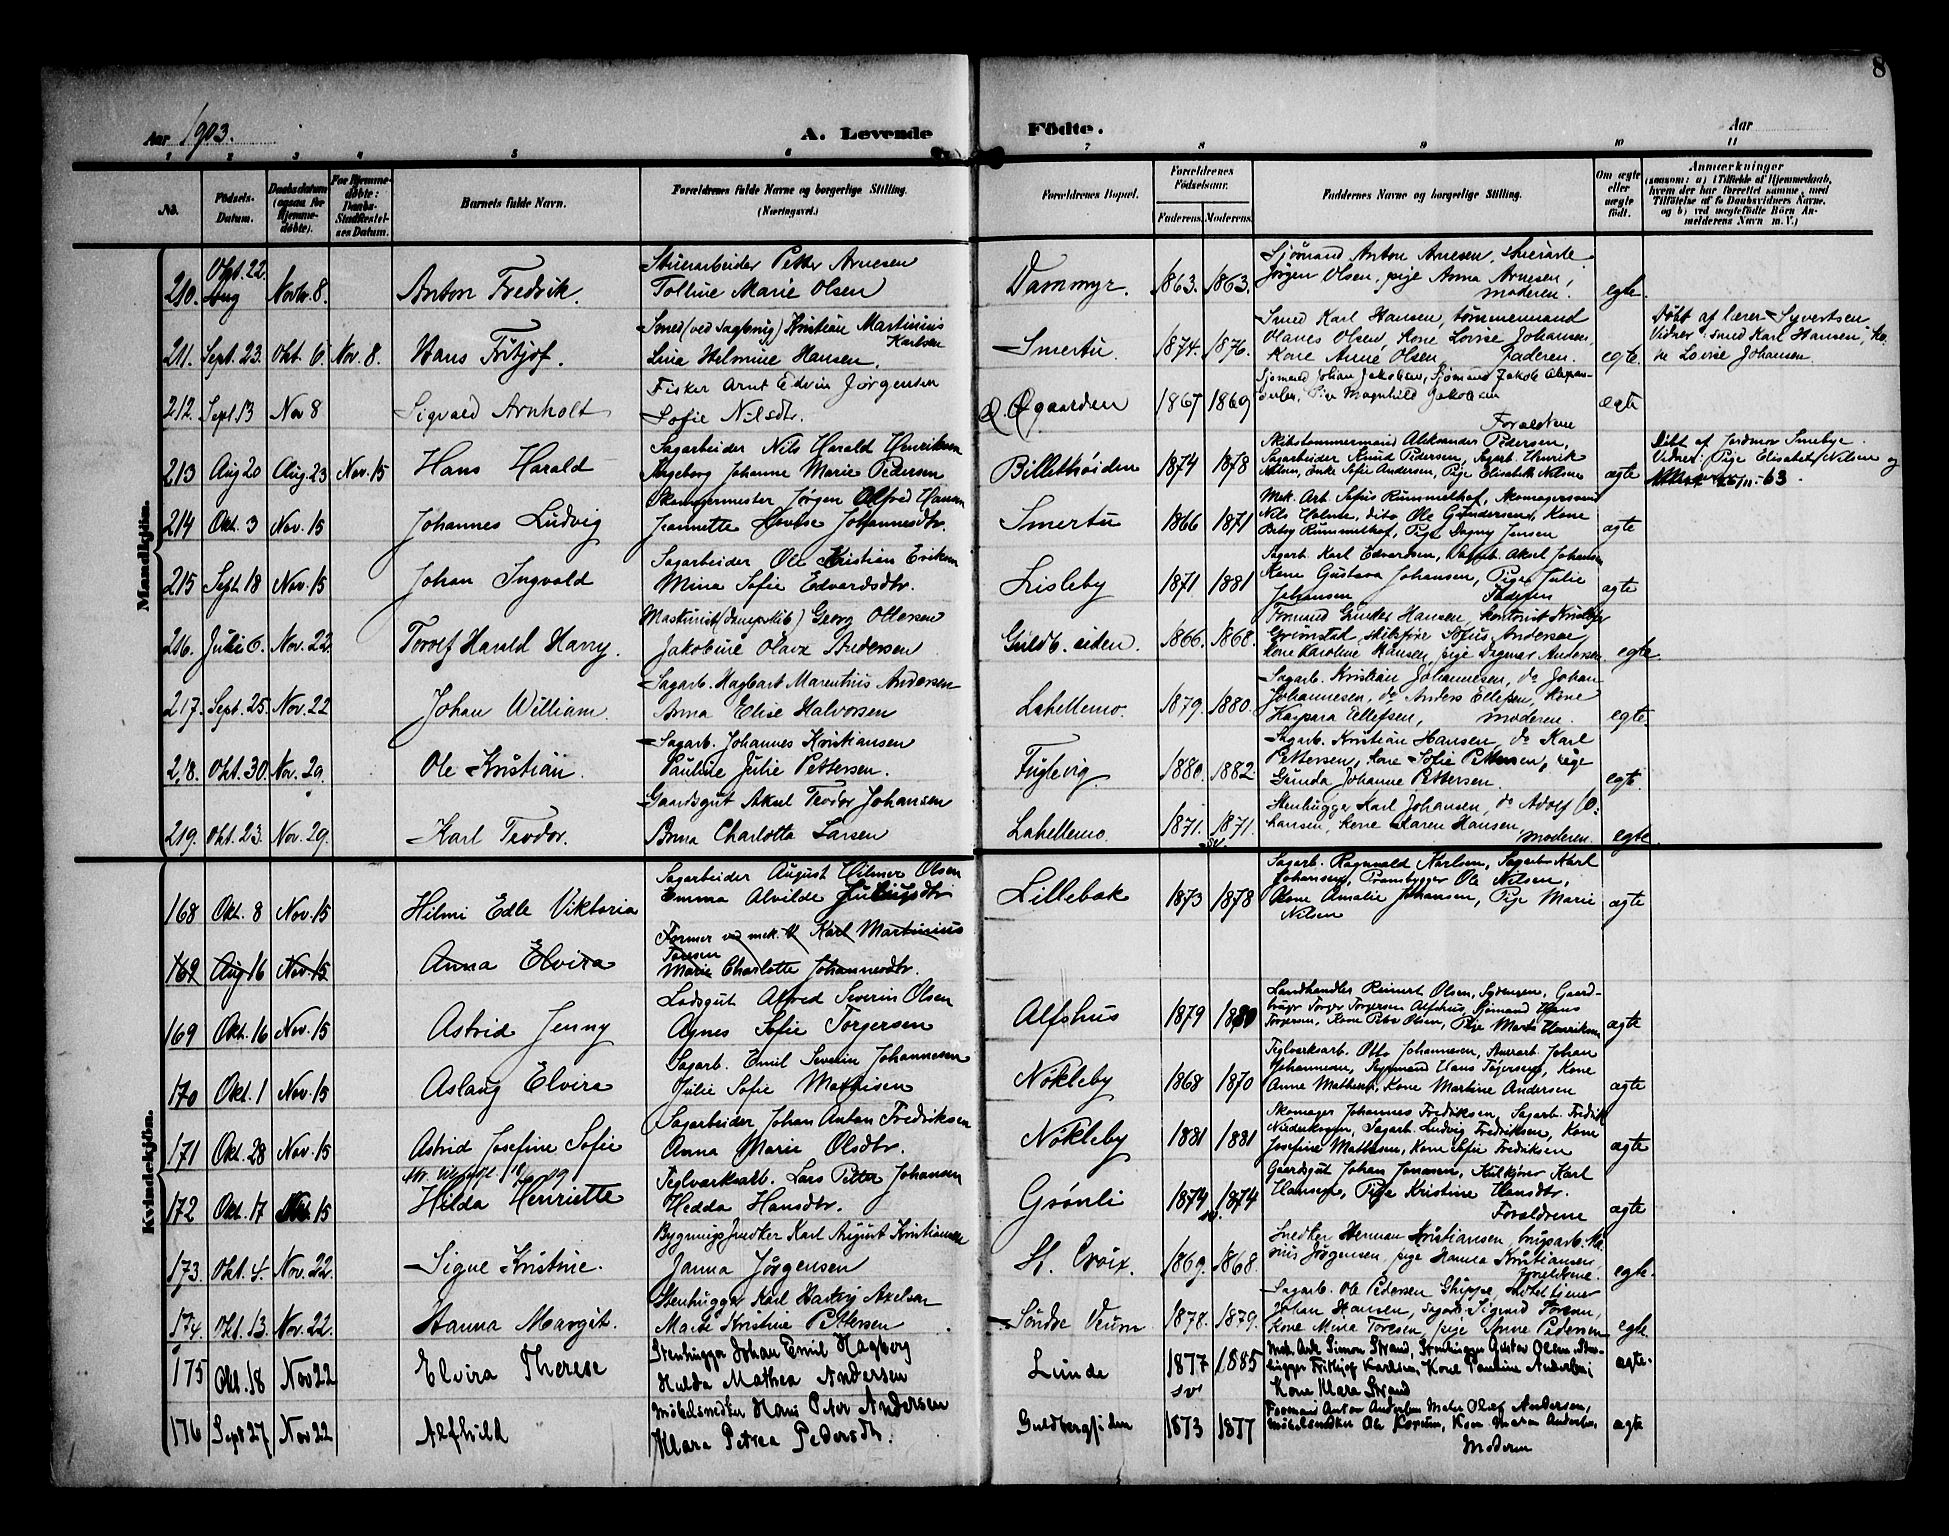 8
Aar 1903.
A. Levende
Födte.
Aar
1 2 3 4 5 6 7 8 9 10 11
No.
Födsels-
Datum.
Daabsdatum
(ogsaa for
Hjemme-
döbte).
For Hjemme-
döbte:
Daabs-
Stadfæstel-
ses Datum.
Barnets fulde Navn.
Forældrenes fulde Navne og borgerlige Stilling.
(Næringsvei.)
Forældrenes Bopæl.
Forældrenes
Födselsaar.
Faderens. Moderens.
Faddernes Navne og borgerlige Stilling.
Om ægte
eller
uægte
födt.
Anmærkninger
(saasom: a) i Tilfælde af Hjemmedaab,
hvem der har forrettet samme, med
Tilföielse af to Daabsvidners Navne,
og b) ved uægtefödte Börn An-
melderens Navn m. V.)
Mandkjön.
210. Okt. 22. Aug Novbr. 8. Anton Fredrik.
Stuerarbeider Petter Arnesen
Tolline Marie Olsen
Dammyr. 1863. 1863.
Sjömand Anton Arnesen,
Jörgen Olsen, pige Anna Arnesen,
moderen.
egte.
211. Sept. 23. Okt. 6. Nov. 8. Hans Fritjof.
Smed (ved sagbrug) Kristian Martinius
Karlsen
Lina Helmine Hansen.
Smertu. 1874. 1876.
Smed Karl Hansen, tömmermand
Olanes Olsen, Kone Lovise Johansen,
Kone Anne Olsen, Faderen.
egte.
Döbt af lærer Syvertsen
Vidner: Smed Karl Hansen, Ko-
ne Lovise Johansen.
212. Sept. 13 Nov 8 Sigvald Arnholt
Fisker Arnt Edvin Jörgensen
Sofie Nilsdtr.
Ø. Øgaarden 1867 1869
Sjömand Johan Jakobsen, Sjömand Jakob
Pige Magnhild Jakobsen
Forældrene
ægte
213 Aug 20 Aug. 23 Nov. 15 Hans Harald
Sagarbeider Nils Harald Henriksen
Ingeborg Johanne Marie Pedersen
Billethöiden 1874 1878
Skibstömmermand Aleksander Pedersen,
Sagarbeider Knud Pedersen, Sagarb. Henrik
Nilsen, Enke Sofie Andersen, Pige Elisabeth Nilsen
ægte
Döbt af Jordmor Smebye.
Vidner: Pige Elisabet Nilsen og
214 Okt. 3 Nov. 15 Johannes Ludvig
Skomagermester Jörgen Alfred Hansen
Jeannette Lovise Johannesdtr.
Smertu 1866 1871
Mek. Arb. Sofus Rummelhof, Skomagersvend
Nils Holm, dito Ole Gundersen, Kone
Betsy Rummelhof, Pige Dagny Jensen
ægte
215 Sept. 18 Nov. 15 Johan Ingvald
Sagarbeider Ole Kristian Eriksen
Mina Sofie Edvardsdtr.
Lisleby 1871 1881
Sagarb. Karl Edvardsen, Sagarb. Aksel Johansen
Kone Gustava Johansen, Pige Julie
Johansen Faderen
ægte
216. Juli 6. Nov. 22 Torolf Harald Harry.
Maskinist (dampskib) Georg Ottersen
Jakobine Olava Andersen
Guldb. siden. 1866. 1868.
Formand Gunder Hansen, kontorist
Grimstad, Sofus Andersen,
Kone Karoline Hansen, pige Dagmar Andersen
egte.
217. Sept. 25. Nov. 22 Johan William.
Sagarb. Hagbart Marentius Andersen
Anna Elise Halvorsen
Labellemo. 1879. 1880.
Sagarb. Kristian Johannesen, do Johan
Johannesen, do Anders Ellefsen, Kone
Kaspara Ellefsen, moderen.
egte.
218. Okt. 30. Nov. 29. Ole Kristian.
Sagarb. Johannes Kristiansen
Pauline Julie Pettersen.
Fuglevig. 1880. 1882.
Sagarb. Kristian Hansen, do Karl
Pettersen, Kone Sofie Pettersen, pige
Gunda Johanne Pettersen.
egte.
219. Okt. 23. Nov. 29. Karl Teodor.
Gaardsgut Aksel Teodor Johansen
Anna Charlotta Larsen
Labellemo. 1871. 1871. sv.
Stenhugger Karl Johansen, do Adolf Jo-
hansen, Kone Karen Hansen,
moderen.
egte.
Kvindekjön.
168 Okt. 8 Nov. 15 Hilmi Edle Viktoria
Sagarbeider August Hilmer Olsen
Emma Alvilde Juliusdtr
Lillebæk 1873 1878
Sagarb. Ragnvald Karlsen, Sagarb. Karl
Johansen, Prambygger Ole Nilsen,
Kone Amalie Johansen, Pige Marie
Nilsen
ægte
169 Aug 16 Nov. 15 Anna Elvira
Former ved mek. V. Karl Martinius
Toresen
Marie Charlotte Johannesdtr.
169 Okt. 16 Nov. 15 Astrid Jenny
Lodsgut Alfred Severin Olsen
Agnes Sofie Torgersen
Alfshus 1879 1880
Landhandler Reinert Olsen, Gaard-
bruger Torger Torgersen Alfshus, Sjömand Hans
Torgersen, Kone Petra Olsen, Pige Marie Henriksen
ægte
170 Okt. 1 Nov. 15 Aslaug Elvira
Sagarb. Emil Severin Johannesen
Julie Sofie Mathisen
Nökleby 1868 1870
Teglværksarb. Otto Johannesen, Stuerarb. Johan
Johannesen, Sjömand Hans Torgersen, Kone
Anne Mathisen, Kone Martine Andersen
ægte
171 Okt. 28 Nov. 15 Astrid Josefine Sofie
Sagarbeider Johan Anton Fredriksen
Anna Marie Olsdtr.
Nökleby 1881 1881
Skomager Johannes Fredriksen, Sagarb. Fredrik
Sagarb. Ludvig Fredriksen, Kone
Josefine Mathisen, Kone Sofie Fredriksen
ægte
172 Okt. 17 Nov. 15 Hilda Henriette
Teglværksarb. Lars Petter Johansen
Hedda Hansdtr.
Grönli 1874 sv. 1874
Gaardsgut Johan Jonasen, Kulkjörer Karl
Hansen, Pige Kristine Hansdtr.
Forældrene
ægte
173. Okt. 4. Nov. 22. Signe Kristine.
Bygningssnedker Karl August Kristiansen
Janna Jörgensen
St. Croix. 1869. 1868.
Snedker Herman Kristiansen, brugsarb. Ma-
rius Jörgensen, pige Hanna Kristiansen,
forældrene.
egte.
174. Okt. 13. Nov. 22. Hanna Margit.
Stenhugger Karl Harry Axelsen
Marie Kristine Pettersen
Söndre Veum. 1878. 1879.
Sagarb. Ole Pedersen Grippe, hoteltjener
Johan Hansen, sagarb. Sigvard Toresen,
Kone Mina Toresen, pige Anne Pedersen
egte
175 Okt. 18 Nov 22 Elvira Therese
Stenhugger Johan Emil Hagberg
Hulda Mathea Andersen
Lunde 1877 sv 1885
Mek. Arb. Simon Strand, Stenhugger Gustav Olsen, Sten-
hugger Frithjof Karlsen, Kone Pauline Andersen,
Kone Klara Strand
ægte.
176 Sept 27 Nov 22 Alfhild
Möbelsnedker Hans Peter Andersen
Klara Petrea Pedersdtr.
Guldbergsiden 1873 1877
Formand Anton Andersen Maler Olaf Andersen,
Möbelsnedker Ole Kone Maren Andersen,
Moderen
ægte